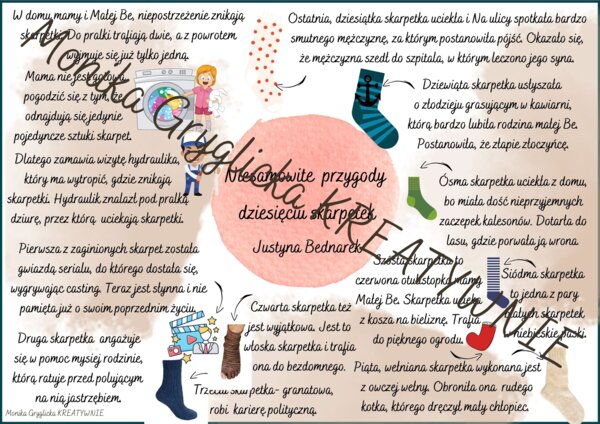 W domu mamy i Małej Be, niepostrzeżenie znikają
skarpetki. Do pralki trafiają dwie, a z powrotem
wyjmuje się już tylko jedną.
Mama nie jest gotowa
pogodzić się z tym, że
odnajdują się jedynie
pojedyncze sztuki skarpet.
Dlatego zamawia wizytę hydraulika,
który ma wytropić, gdzie znikają
skarpetki. Hydraulik znalazł pod pralką
dziurę, przez którą uciekają skarpetki.
Pierwsza z zaginionych skarpet została
gwiazdą serialu, do którego dostała się,
wygrywając casting. Teraz jest słynna i nie
pamięta już o swoim poprzednim życiu.
Druga skarpetka angażuje
się w pomoc mysiej rodzinie,
którą ratuje przed polującym
na nią jastrzębiem.
Trzecia skarpetka- granatowa,
robi karierę polityczną.
Czwarta skarpetka też
jest wyjątkowa. Jest to
włoska skarpetka i trafia
ona do bezdomnego.
Piąta, wełniana skarpetka wykonana jest
z owczej wełny. Obroniła ona rudego
kotka, którego dręczył mały chłopiec.
Szósta skarpetka to
czerwona otulstopka mamy
Małej Be. Skarpetka ucieka
z kosza na bieliznę. Trafia
do pięknego ogrodu.
Siódma skarpetka
to jedna z pary
białych skarpetek
w niebieskie paski.
Ósma skarpetka uciekła z domu,
bo miała dość nieprzyjemnych
zaczepek kalesonów. Dotarła do
lasu, gdzie porwała ją wrona.
Dziewiąta skarpetka usłyszała
o złodzieju grasującym w kawiarni,
którą bardzo lubiła rodzina małej Be.
Postanowiła, że złapie złoczyńcę.
Ostatnia, dziesiątka skarpetka uciekła i Na ulicy spotkała bardzo
smutnego mężczyznę, za którym postanowiła pójść. Okazało się,
że mężczyzna szedł do szpitala, w którym leczono jego syna.
Niesamowite przygody
dziesięciu skarpetek
Justyna Bednarek
Monika Gryglicka KREATYWNIE
Monika Gryglicka KREATYWNIE